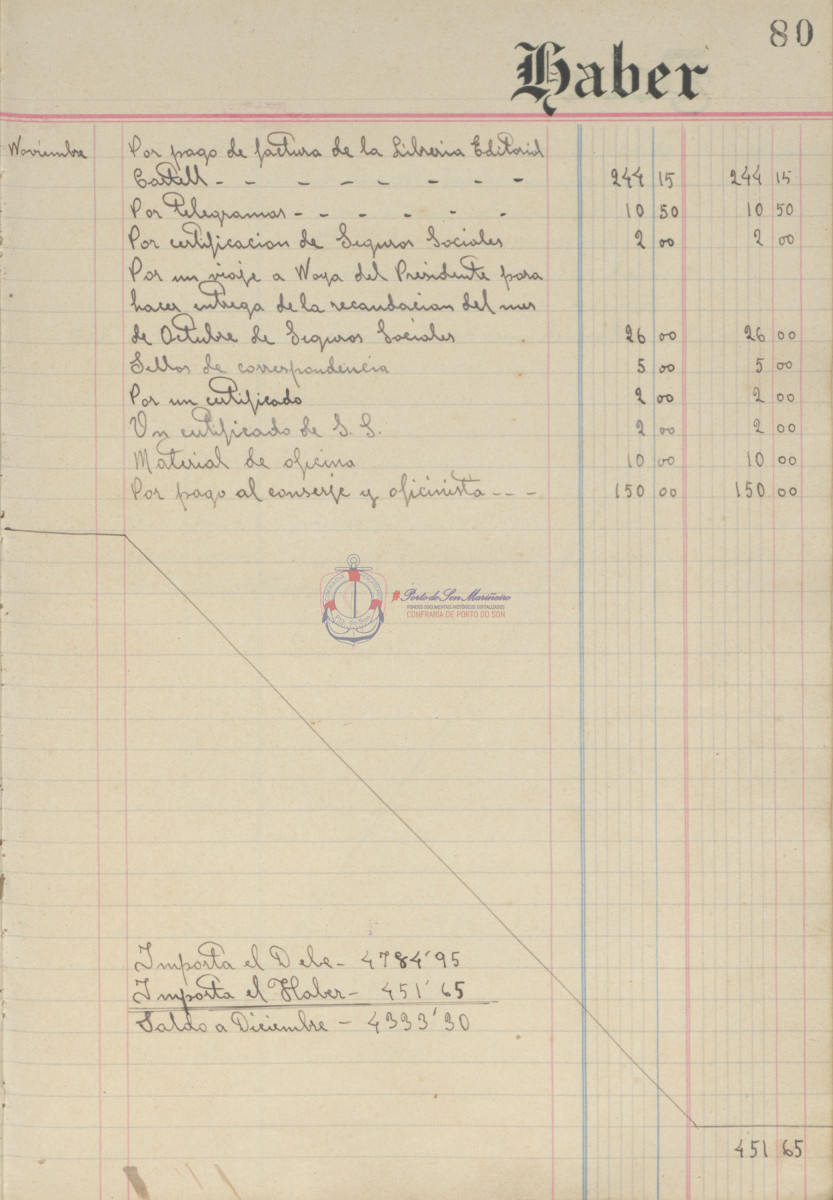 80
Haber
Noviembre Por pago de factura de la Libreria Editorial
Castell - - - - - - - - 244 15 244 15
Por telegramas - - - - - - 10 50 10 50
Por certificacion de Seguros Sociales 2 00 2 00
Por un viaje a Noya del Presidente para
hacer entrega de la recaudacion del mes
de Octubre de Seguros Sociales 26 00 26 00
Sellos de correspondencia 5 00 5 00
Por un certificado 2 00 2 00
Un certificado de S. S. 2 00 2 00
Material de oficina 10 00 10 00
Por pago al conserje y oficinista - - - 150 00 150 00
#Porto do Son Mariñeiro
FONDOS DOCUMENTAIS HISTÓRICOS DIXITALIZADOS
CONFRARÍA DE PORTO DO SON
Importa el Debe - 4784'95
Importa el Haber - 451'65
Saldo a Diciembre - 4333'30
451 65